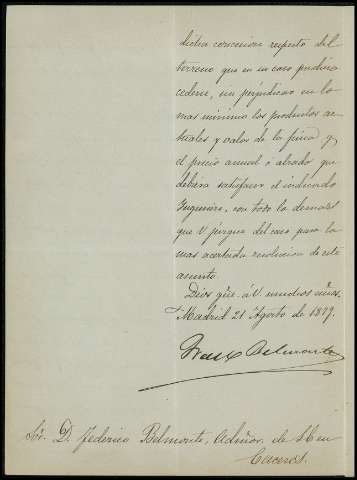 dicha concesion respecto del
terreno que en un caso pudiera
cederse, sin perjudicar en lo
mas minimo los productos ac-
tuales y valor de la finca y
el precio anual ó alzado que
debiera satisfacer el indicado
Ingeniero, con todo lo demas
que V. juzgue del caso para la
mas acertada resolucion de este
asunto.
Dios gũe. á V. muchos años.
Madrid 21 Agosto de 1879.
Belmonte
Sr. D. Federico Belmonte, Admor. de S. E. en
Caceres.